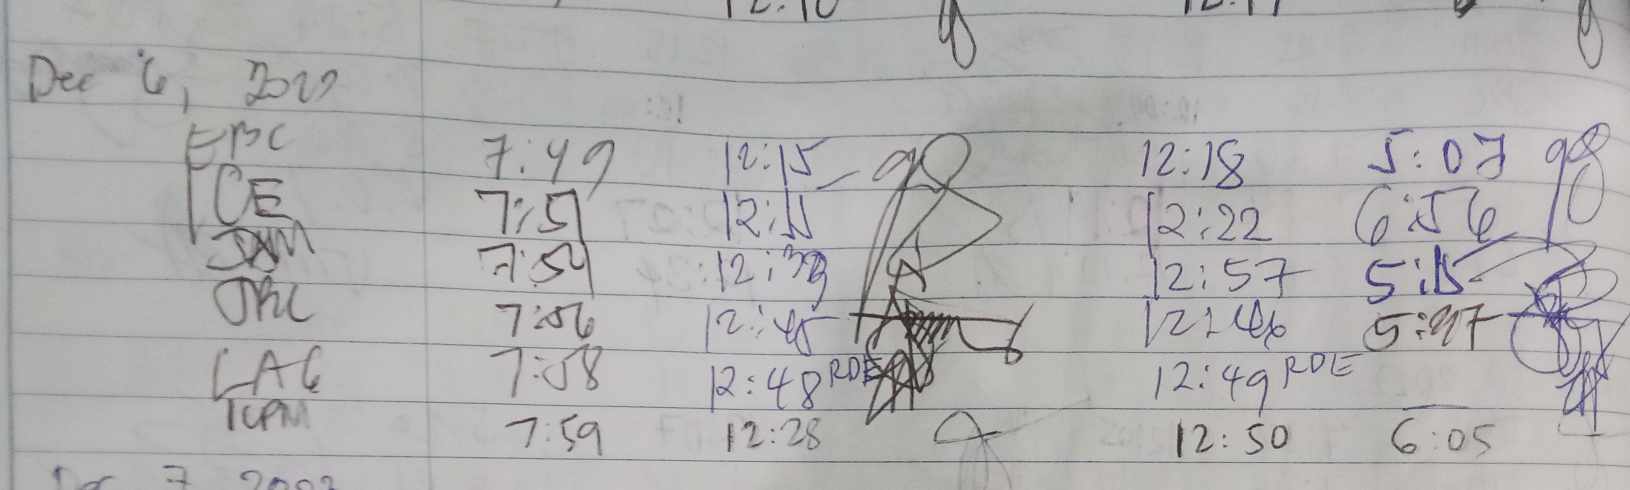 12:10 12:17
Dec 6, 2022
EBC 7:49 12:15 12:18 5:07
CE 7:51 12:15 12:22 6:56
JXM 7:54 12:39 12:57 5:15
JRC 7:56 12:45 12:46 5:47
LAG 7:58 12:48 RDE 12:49 RDE
TCPM 7:59 12:28 12:50 6:05
Dec 7, 2022